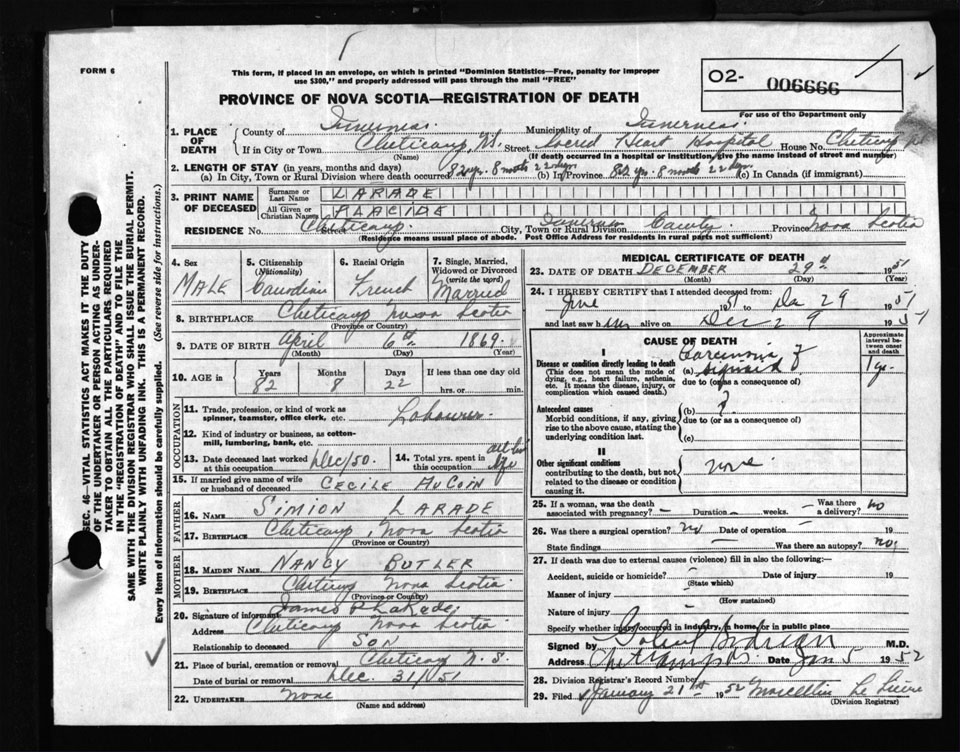 FORM 6
This form, if placed in an envelope, on which is printed "Dominion Statistics—Free, penalty for improper
use $300," and properly addressed will pass through the mail "FREE"
O2- 006666
For use of the Department only
PROVINCE OF NOVA SCOTIA—REGISTRATION OF DEATH
1. PLACE OF DEATH
County of Inverness Municipality of Inverness
If in City or Town Cheticamp, N.S. Street Sacred Heart Hospital House No. Cheticamp
(Name) (If death occurred in a hospital or institution, give the name instead of street and number)
2. LENGTH OF STAY (in years, months and days)
(a) In City, Town or Rural Division where death occurred 82 yrs. 8 months 22 days (b) In Province 82 yrs. 8 months 22 days (c) In Canada (if immigrant)
3. PRINT NAME OF DECEASED
Surname or Last Name LARADE
All Given or Christian Names PLACIDE
RESIDENCE No. Street Cheticamp City, Town or Rural Division Inverness County Province Nova Scotia
(Residence means usual place of abode. Post Office Address for residents in rural parts not sufficient)
4. Sex MALE
5. Citizenship (Nationality) Canadian
6. Racial Origin French
7. Single, Married, Widowed or Divorced (write the word) Married
8. BIRTHPLACE Cheticamp Nova Scotia
(Province or Country)
9. DATE OF BIRTH April 6th 1869
(Month) (Day) (Year)
10. AGE in Years 82 Months 8 Days 22 If less than one day old hrs. or min.
OCCUPATION
11. Trade, profession, or kind of work as spinner, teamster, office clerk, etc.
12. Kind of industry or business, as cotton-mill, lumbering, bank, etc.
13. Date deceased last worked at this occupation Dec/50.
14. Total yrs. spent in this occupation all his life
15. If married give name of wife or husband of deceased CECILE AUCOIN
FATHER
16. NAME SIMION LARADE
17. BIRTHPLACE Cheticamp, Nova Scotia
(Province or Country)
MOTHER
18. MAIDEN NAME NANCY BUTLER
19. BIRTHPLACE Cheticamp Nova Scotia
(Province or Country)
20. Signature of informant James P Larade
Address Cheticamp Nova Scotia
Relationship to deceased SON
21. Place of burial, cremation or removal Cheticamp N.S.
Date of burial or removal Dec. 31/51
22. UNDERTAKER None
(Name and address)
MEDICAL CERTIFICATE OF DEATH
23. DATE OF DEATH DECEMBER 29th 1951
(Month) (Day) (Year)
24. I HEREBY CERTIFY that I attended deceased from:
June 1951 to Dec 29 1951
and last saw him alive on Dec 29 1951
CAUSE OF DEATH
Approximate interval between onset and death
I
Disease or condition directly leading to death (a) Carcinoma of sigmoid 1 yr.
(This does not mean the mode of dying, e.g., heart failure, asthenia, etc. It means the disease, injury, or complication which caused death.)
due to (or as a consequence of)
Antecedent causes
Morbid conditions, if any, giving rise to the above cause, stating the underlying condition last.
(b) ?
due to (or as a consequence of)
(c)
II
Other significant conditions
contributing to the death, but not related to the disease or condition causing it.
none
25. If a woman, was the death associated with pregnancy? — Duration — weeks. — Was there a delivery? no
26. Was there a surgical operation? no Date of operation — 19
State findings — Was there an autopsy? no
27. If death was due to external causes (violence) fill in also the following:—
Accident, suicide or homicide? Date of injury 19
(State which)
Manner of injury
(How sustained)
Nature of injury
Specify whether injury occurred in industry, in home, or in public place
Signed by M.D.
Address Date Jan 5 1952
28. Division Registrar's Record Number
29. Filed January 21st 1952 Marcellin
(Division Registrar)
SEC. 46—VITAL STATISTICS ACT MAKES IT THE DUTY
OF THE UNDERTAKER OR PERSON ACTING AS UNDER-
TAKER TO OBTAIN ALL THE PARTICULARS REQUIRED
IN THE "REGISTRATION OF DEATH" AND TO FILE THE
SAME WITH THE DIVISION REGISTRAR WHO SHALL ISSUE THE BURIAL PERMIT.
WRITE PLAINLY WITH UNFADING INK. THIS IS A PERMANENT RECORD.
Every item of information should be carefully supplied. (See reverse side for instructions.)